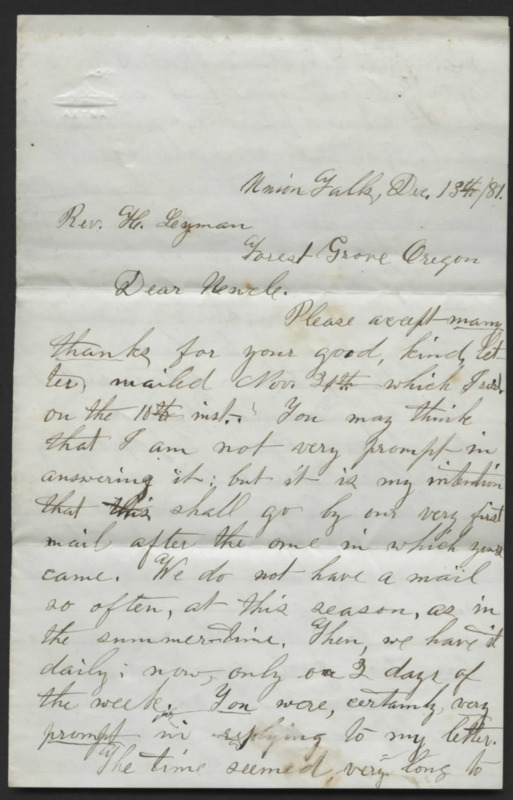 ÆTNA
Union Falls, Dec. 13th/81.
Rev. H. Lyman
Forest Grove Oregon
Dear Uncle.
Please accept many
thanks for your good, kind, let
ter, mailed Nov. 31th which I recd.
on the 10th inst. You may think
that I am not very prompt in
answering it; but it is my intention
that this shall go by our very first
mail after the one in which yours
came. We do not have a mail
so often, at this season, as in
the summer-time. Then, we have it
daily; now, only on 2 days of
the week. You were, certainly, very
prompt in replying to my letter.
The time seemed very long to